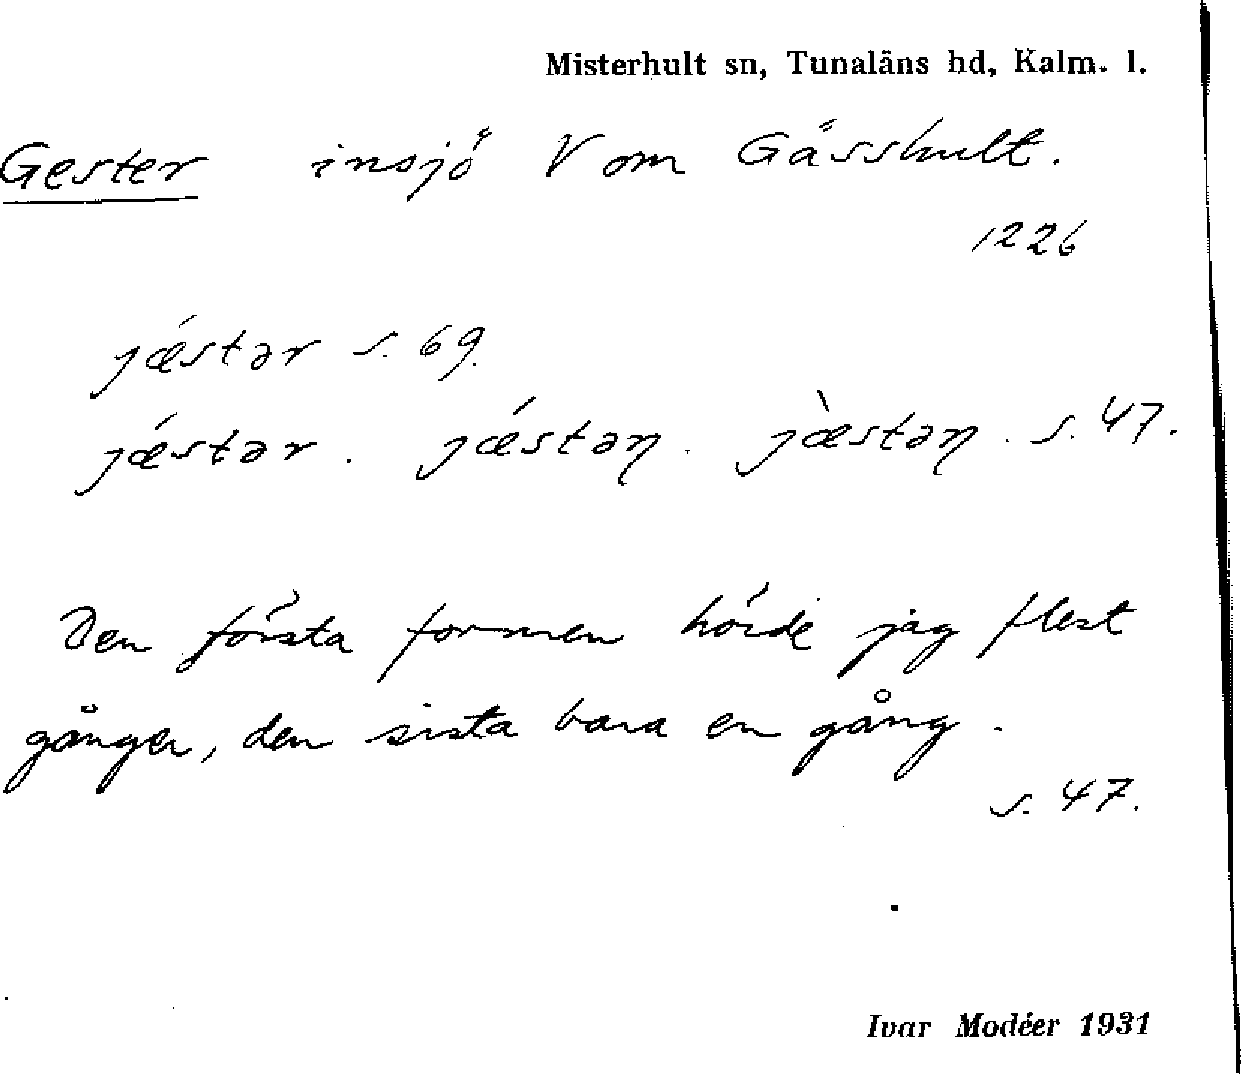 Misterhult sn, Tunaläns hd, Kalm. l.
Gester insjö V om Gässhult.
1226
jǽstər s. 69.
jǽstər. jǽstəɳ. jæ̀stəɳ. s. 47.
Den första formen hörde jag flest
gånger, den sista bara en gång.
s. 47.
Ivar Modéer 1931